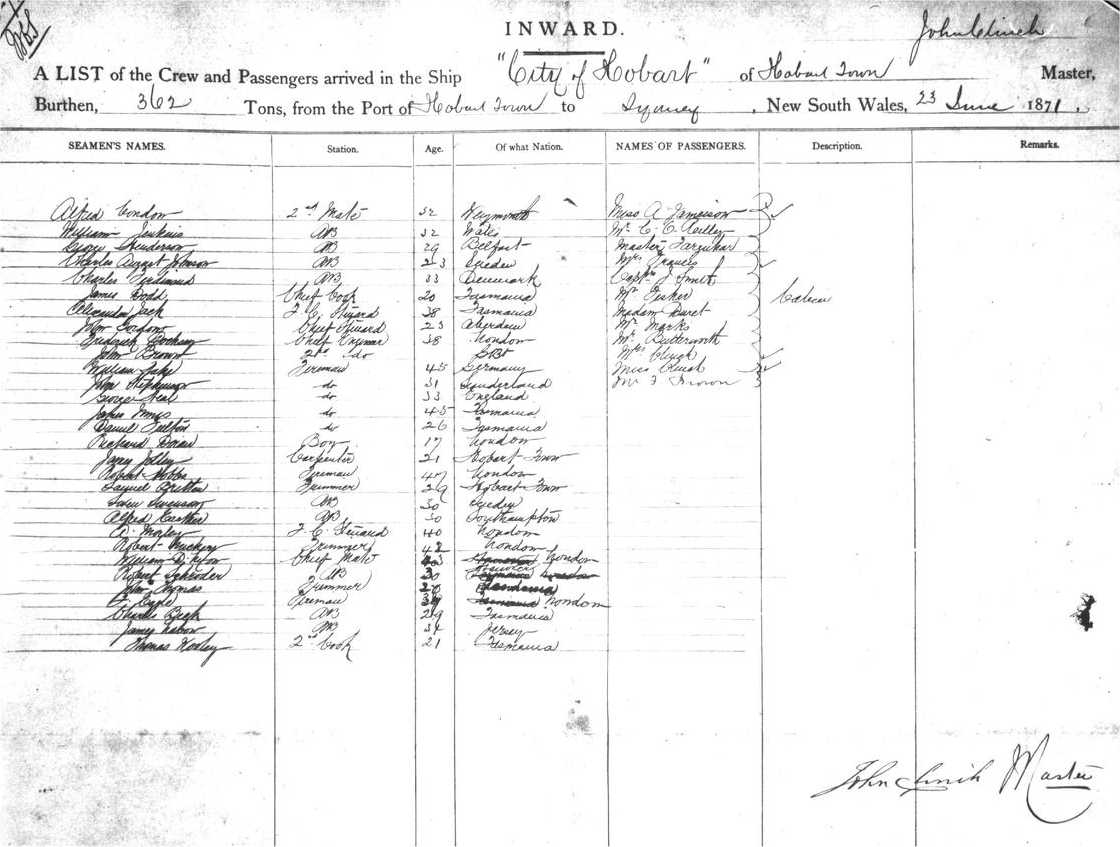 INWARD.
John Clinch
A LIST of the Crew and Passengers arrived in the Ship "City of Hobart" of Hobart Town Master,
Burthen, 362 Tons, from the Port of Hobart Town to Sydney, New South Wales, 23 June 1871.
SEAMEN'S NAMES. Station. Age. Of what Nation. NAMES OF PASSENGERS. Description. Remarks.
Alfred Condow 2nd Mate 32 Weymouth Miss A Jameison
William Jenkins AB 32 Wales Mr C. C.
George Henderson AB 29 Belfast Master Farquhar
Charles August Johnson AB 23 Sweden Mrs Francis
Charles Ferdinand AB 33 Denmark Captn J Smith
James Dodd Chief Cook 20 Tasmania Mr Cabin
Alexander Jack F C Steward 38 Tasmania Madam Duret
John Gordon Chief Steward 23 Aberdeen Mr Marks
Frederick Chief Engineer 38 London Mr Butterworth
John Brown 2nd do Mrs Clinch
William Fireman 45 Germany Miss Clinch
John Stephenson do 31 Sunderland Mr F Brown
George Neal do 33 England
James Innes do 45 Tasmania
Daniel Fulton do 26 Tasmania
Richard Doran Boy 17 London
James Jolley Carpenter 21 Hobart Town
Robert Hobbs Fireman 47 London
Samuel Trimmer 29 Hobart Town
Swen Swenson AB 30 Sweden
Alfred AB 30 Southampton
A. Morley F C Steward 40 London
Robert Trimmer 42 London
William Chief Mate London
Robert Schroder AB 30
John Thomas Trimmer
Fireman London
Charles Pugh AB 29 Tasmania
James AB 34 Jersey
Thomas Hooley 2nd Cook 21 Tasmania
John Clinch Master